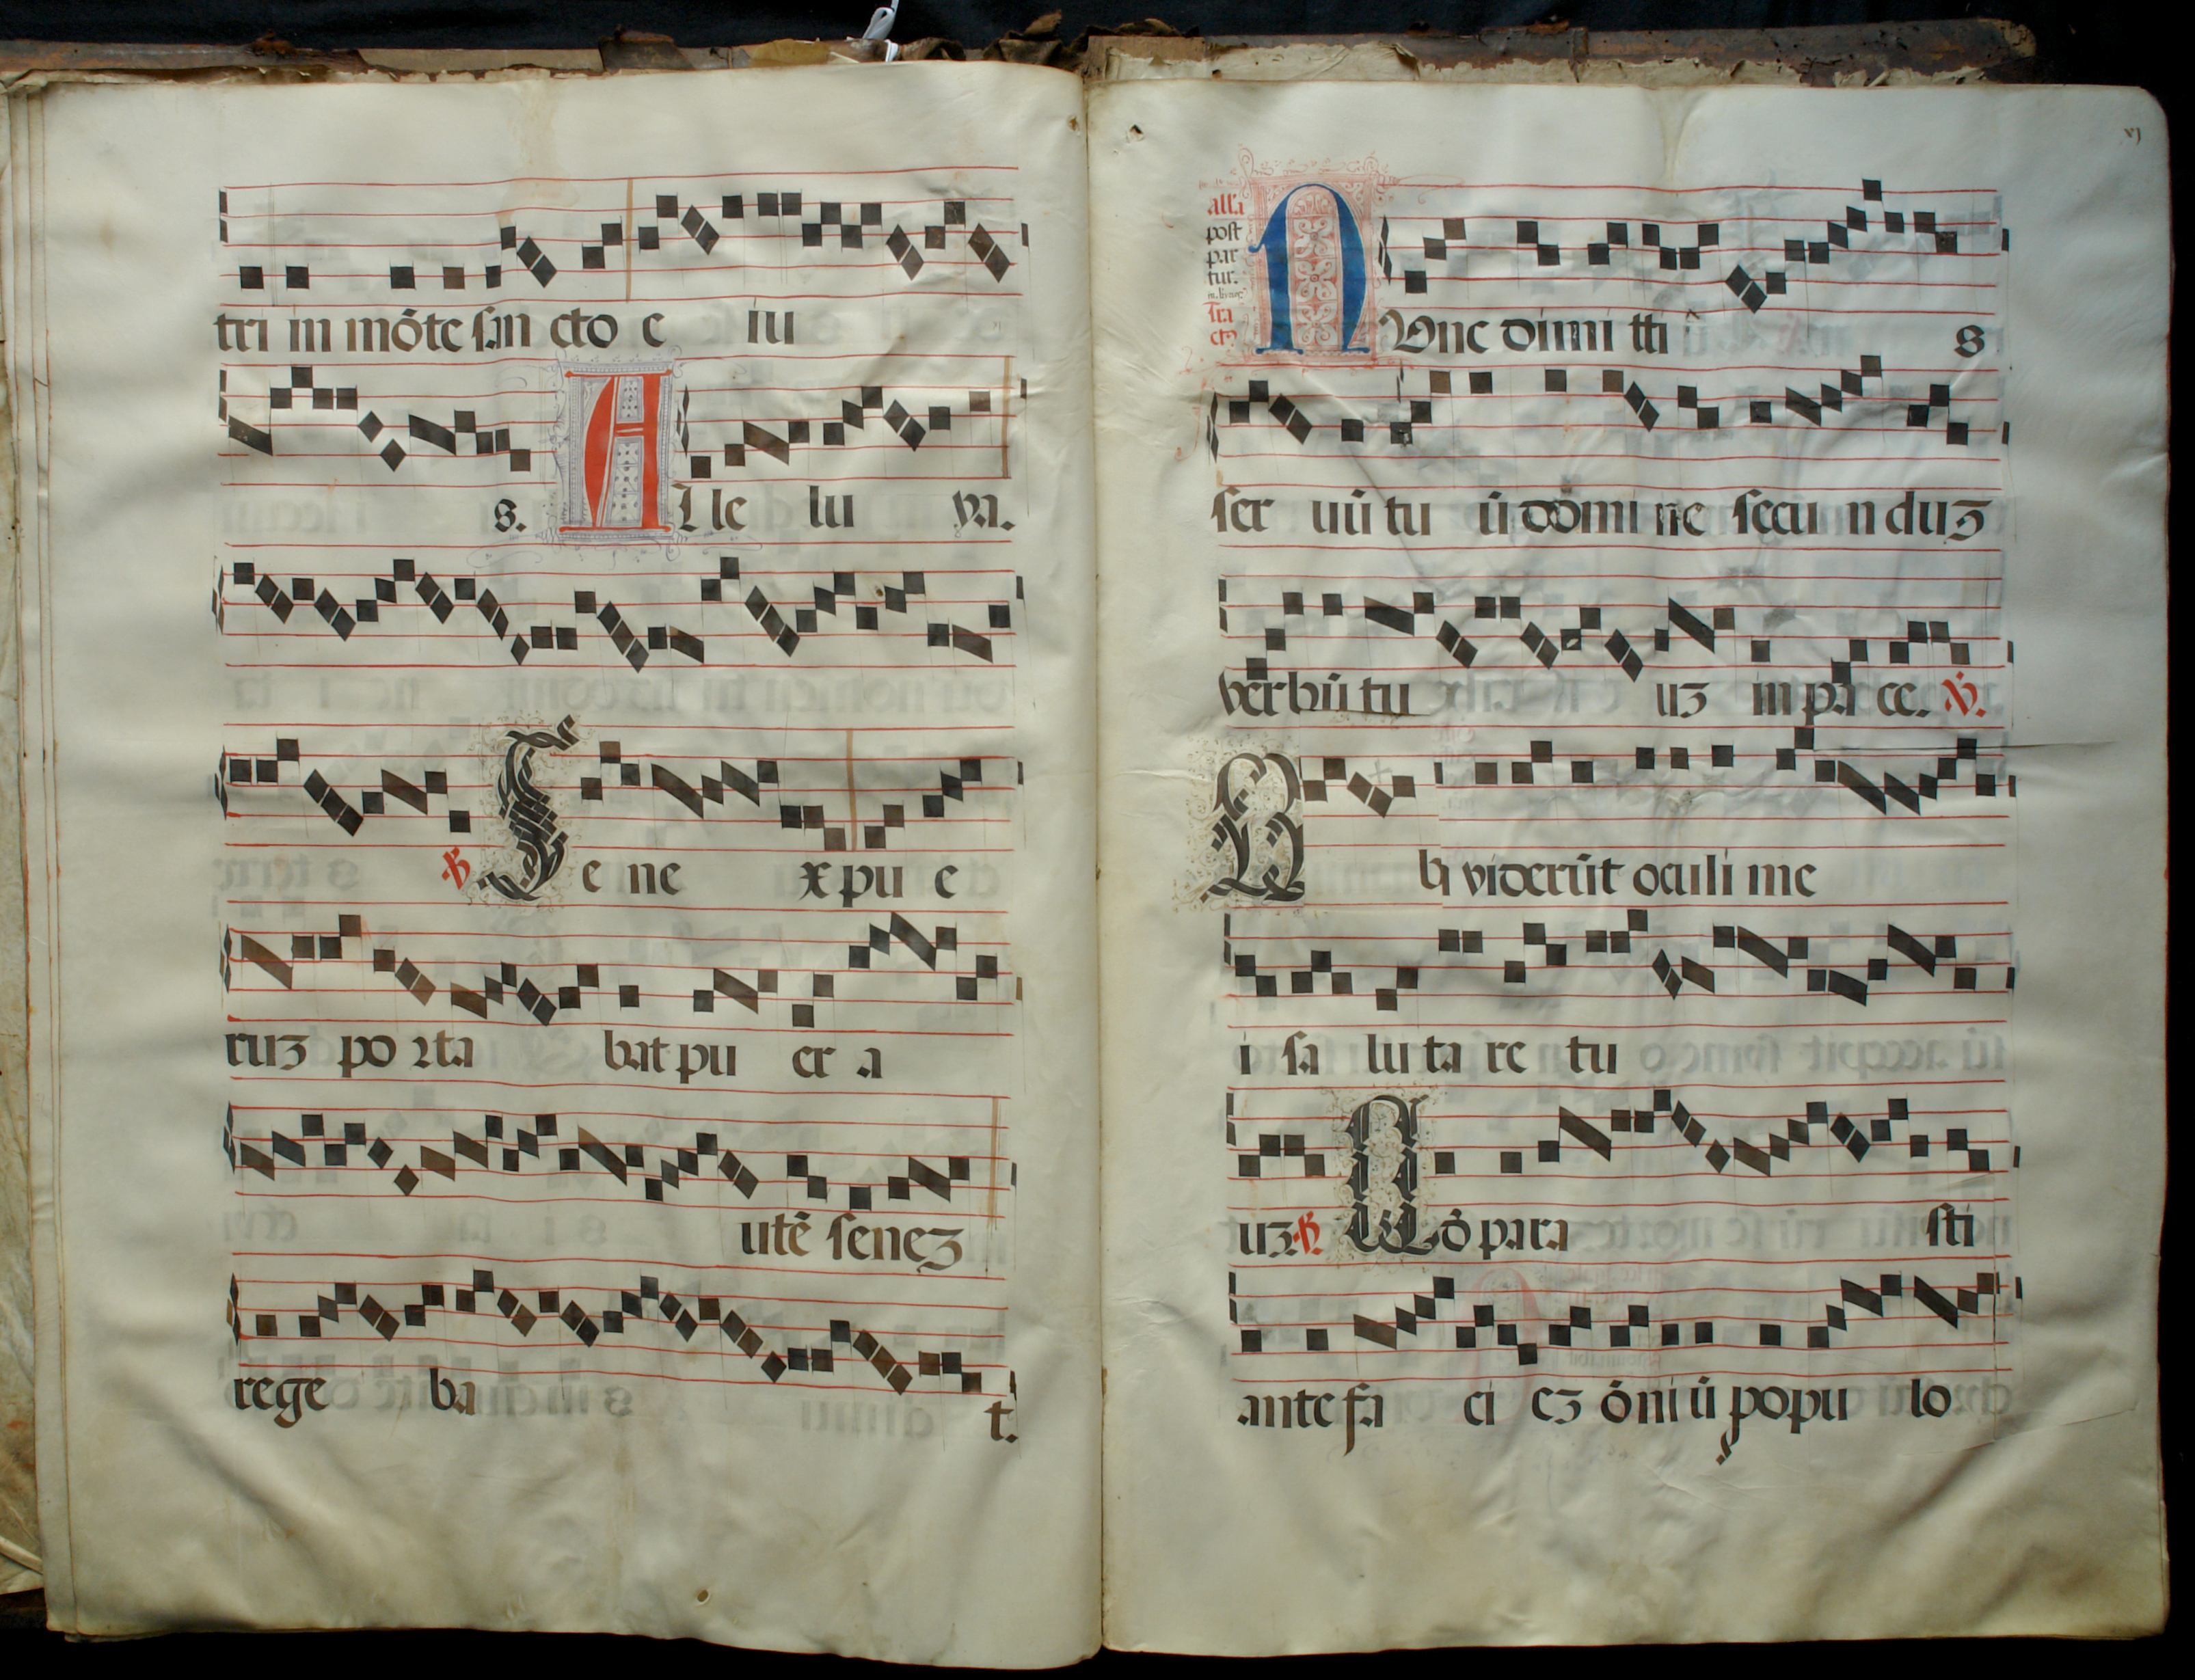 tri in mōte san cto e iu
s. A lle lu ya.
℟ S e ne x pu e
ruz po rta bat pu er a
utē senez
rege ba t.
vj
alla
post
par
tur.
tra
ct⁹
N Unc dimi tti s
ser uū tu ū dōmi ne secu n duz
verbū tu uz in pa ce. ℣.
Q uj viderūt oculi me
i sa lu ta re tu
uz. ℟. Q ō para sti
ante fa ci ez ōni ū popu lo